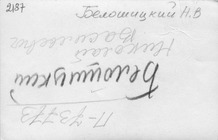 2187
Белошицкий Н.В
Николай
Васильевич
Белошицкий
П-73773